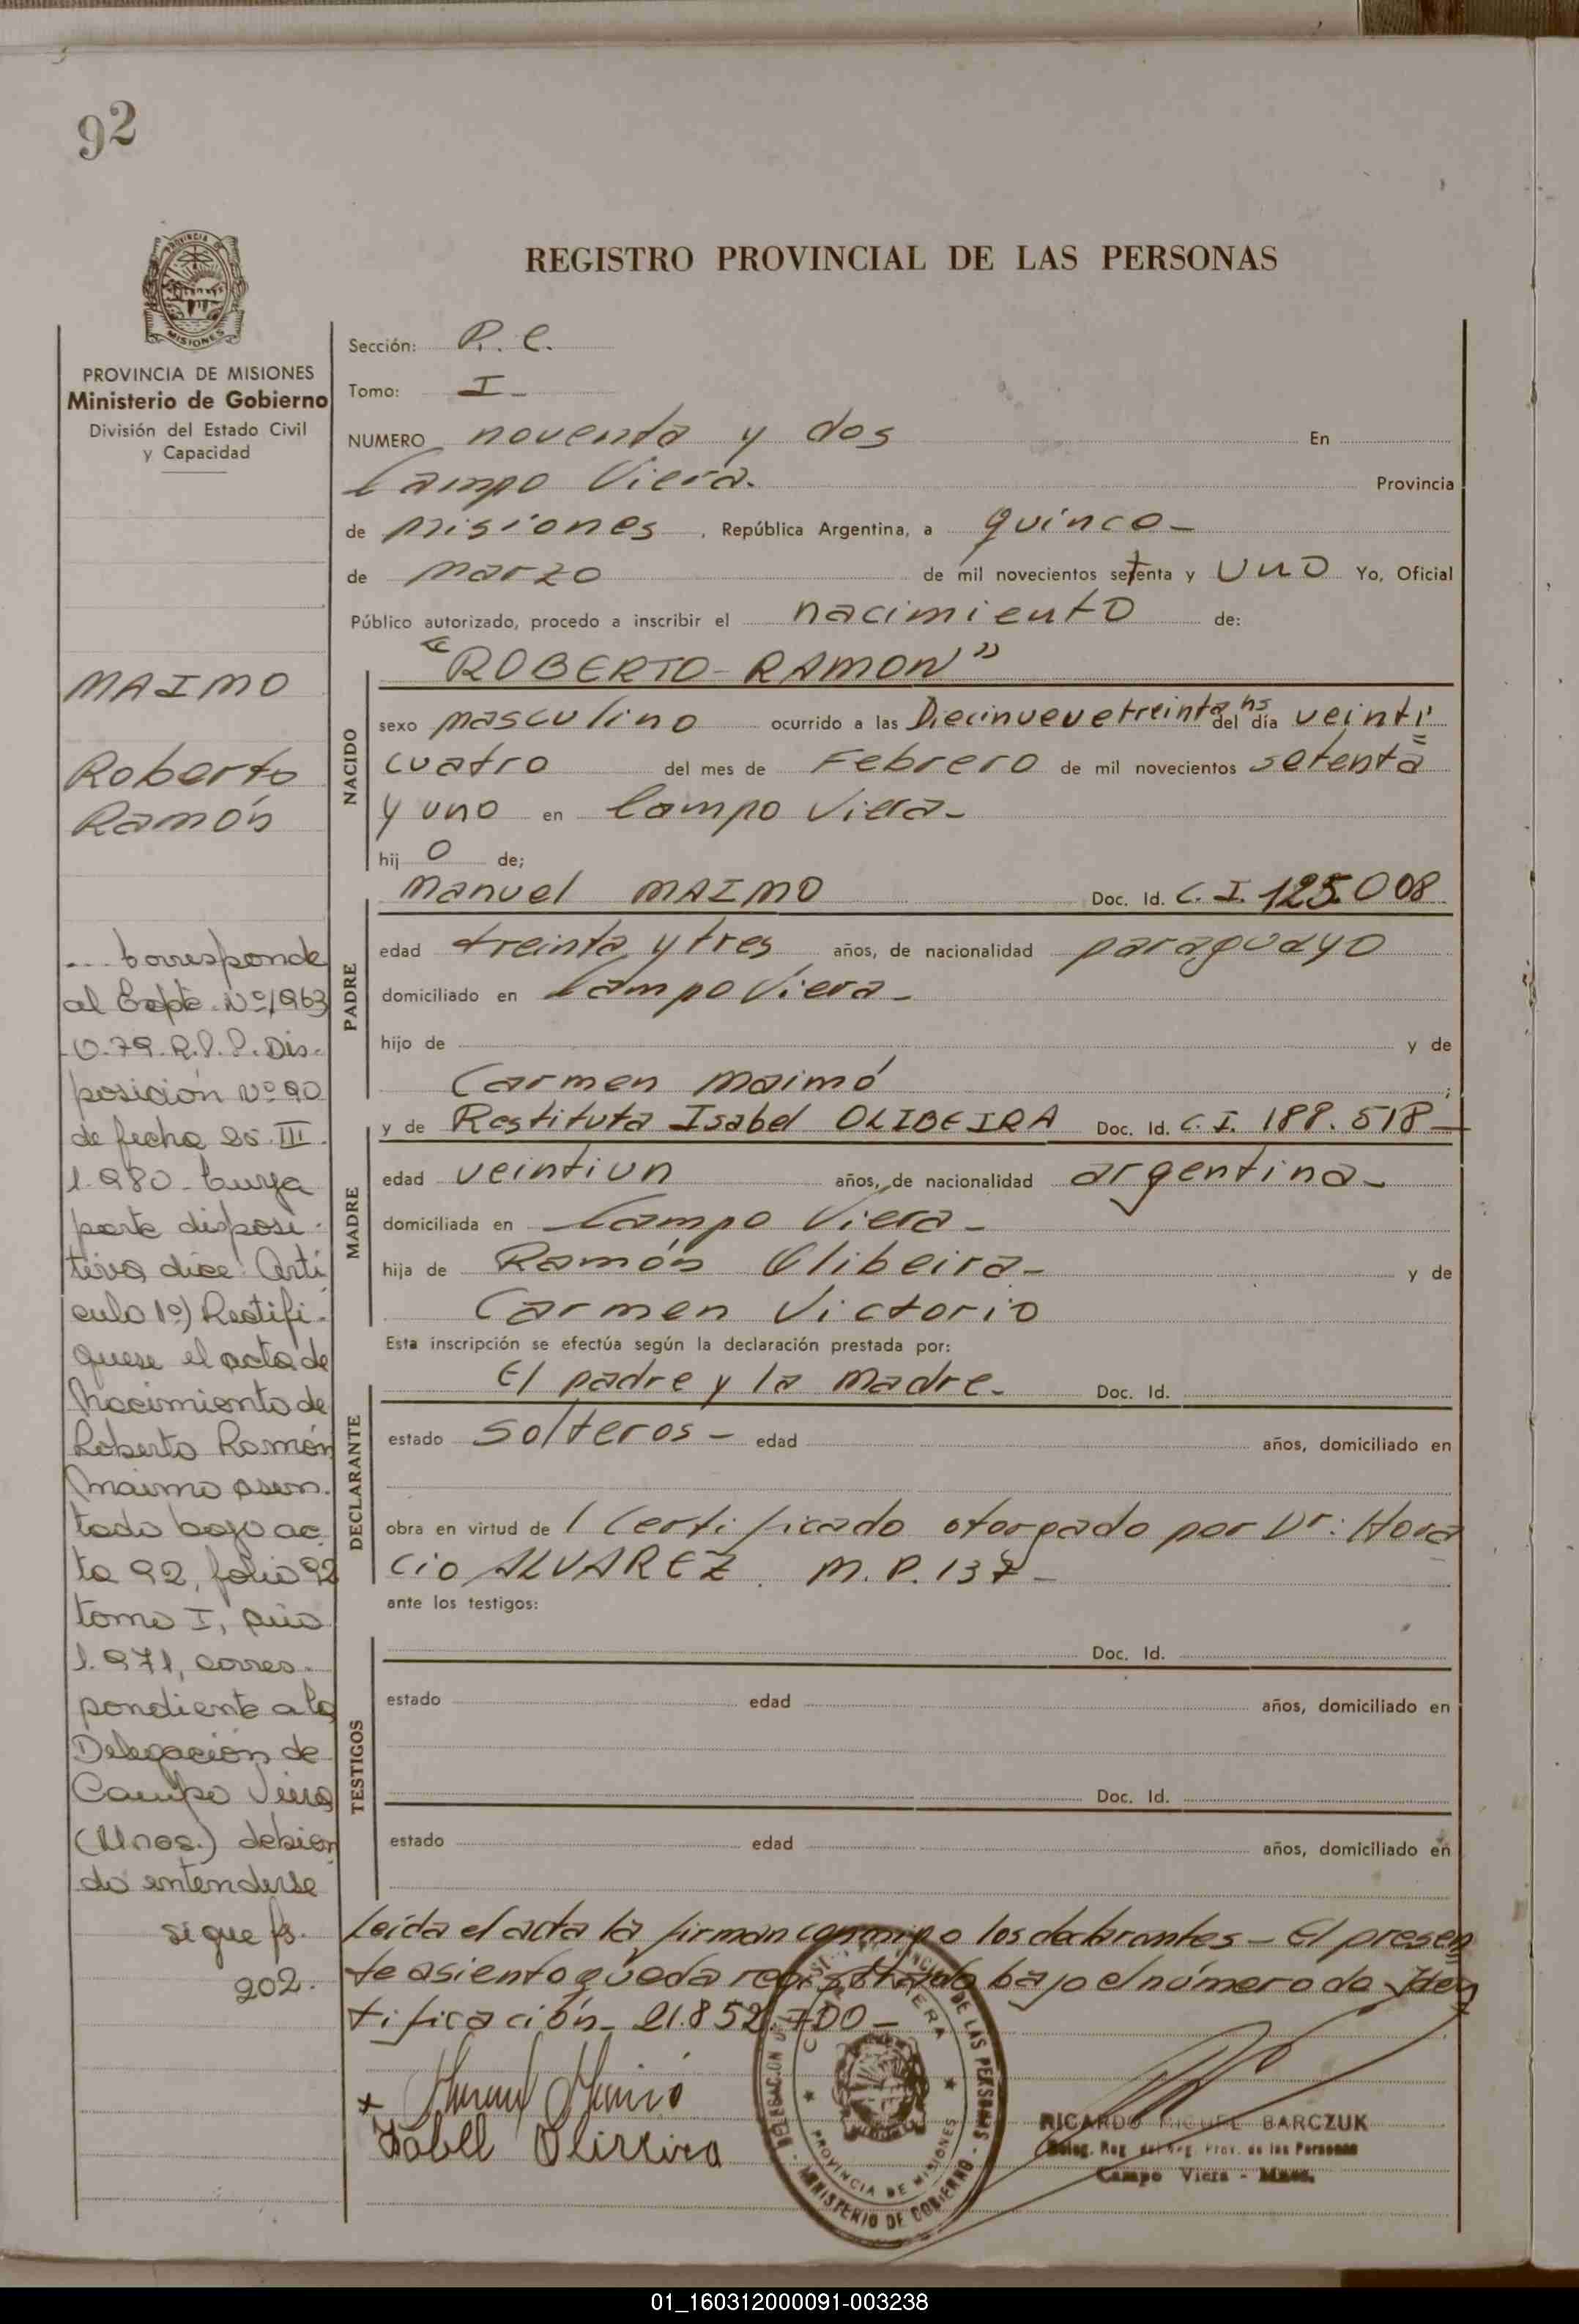 92
PROVINCIA DE MISIONES
REGISTRO PROVINCIAL DE LAS PERSONAS
PROVINCIA DE MISIONES
Ministerio de Gobierno
División del Estado Civil
y Capacidad
Sección: R. C.
Tomo: I -
NUMERO noventa y dos En
Campo Viera. Provincia
de misiones, República Argentina, a quince -
de marzo de mil novecientos setenta y UNO Yo, Oficial
Público autorizado, procedo a inscribir el nacimiento de:
"ROBERTO - RAMON"
MAIMO
Roberto
Ramón
NACIDO
sexo masculino ocurrido a las Diecinueve treinta hs del día veinti
cuatro del mes de Febrero de mil novecientos setenta
y uno en Campo Viera -
hij o de;
PADRE
Manuel MAIMO Doc. Id. C. I. 125.008
edad treinta y tres años, de nacionalidad paraguayo
domiciliado en Campo Viera -
hijo de y de
Carmen Maimó ;
MADRE
y de Restituta Isabel OLIBEIRA Doc. Id. C. I. 188.518 -
edad veintiun años, de nacionalidad argentina -
domiciliada en Campo Viera -
hija de Ramón Olibeira - y de
Carmen Victorio
Esta inscripción se efectúa según la declaración prestada por:
DECLARANTE
El padre y la Madre - Doc. Id.
estado Solteros - edad años, domiciliado en
obra en virtud de 1 Certificado otorgado por Dr: Hora
cio ALVAREZ. M. P. 137 -
ante los testigos:
TESTIGOS
Doc. Id.
estado edad años, domiciliado en
Doc. Id.
estado edad años, domiciliado en
Leída el acta la firman conmigo los declarantes - El presen
te asiento queda registrado bajo el número de Iden
tificación - 21.852.700 -
... Corresponde
al Expte. Nº 1963
0.79. R.P.P. Dis-
posición Nº 90
de fecha 25. III.
1.980 - Cuya
parte disposi-
tiva dice: Artí
culo 1º) Rectifi-
quese el acta de
Nacimiento de
Roberto Ramón
Maimo asen-
tado bajo ac
ta 92, folio 92
tomo I, año
1.971, corres-
pondiente a la
Delegación de
Campo Viera
(Mnes.) debien
do entenderse
sigue fs.
202.
Manuel Maimó
Isabel Olireira
DELEGACION DE LAS PERSONAS - MINISTERIO DE GOBIERNO
PROVINCIA DE MISIONES
RICARDO MIGUEL BARCZUK
Deleg. Reg. del Reg. Prov. de las Personas
Campo Viera - Mnes.
01_160312000091-003238